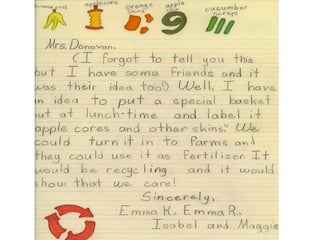 banana peels apple core orange skins apple skin cucumber scraps
Mrs. Donavan,
(I forgot to tell you this
but I have some friends and it
was their idea too) Well, I have
an idea to put a special basket
out at lunch-time and label it
apple cores and other skins." We
could turn it in to farms and
they could use it as fertilizer It
would be recycling and it would
show that we care!
Sincerely,
Emma K., Emma R.,
Isabel and Maggie